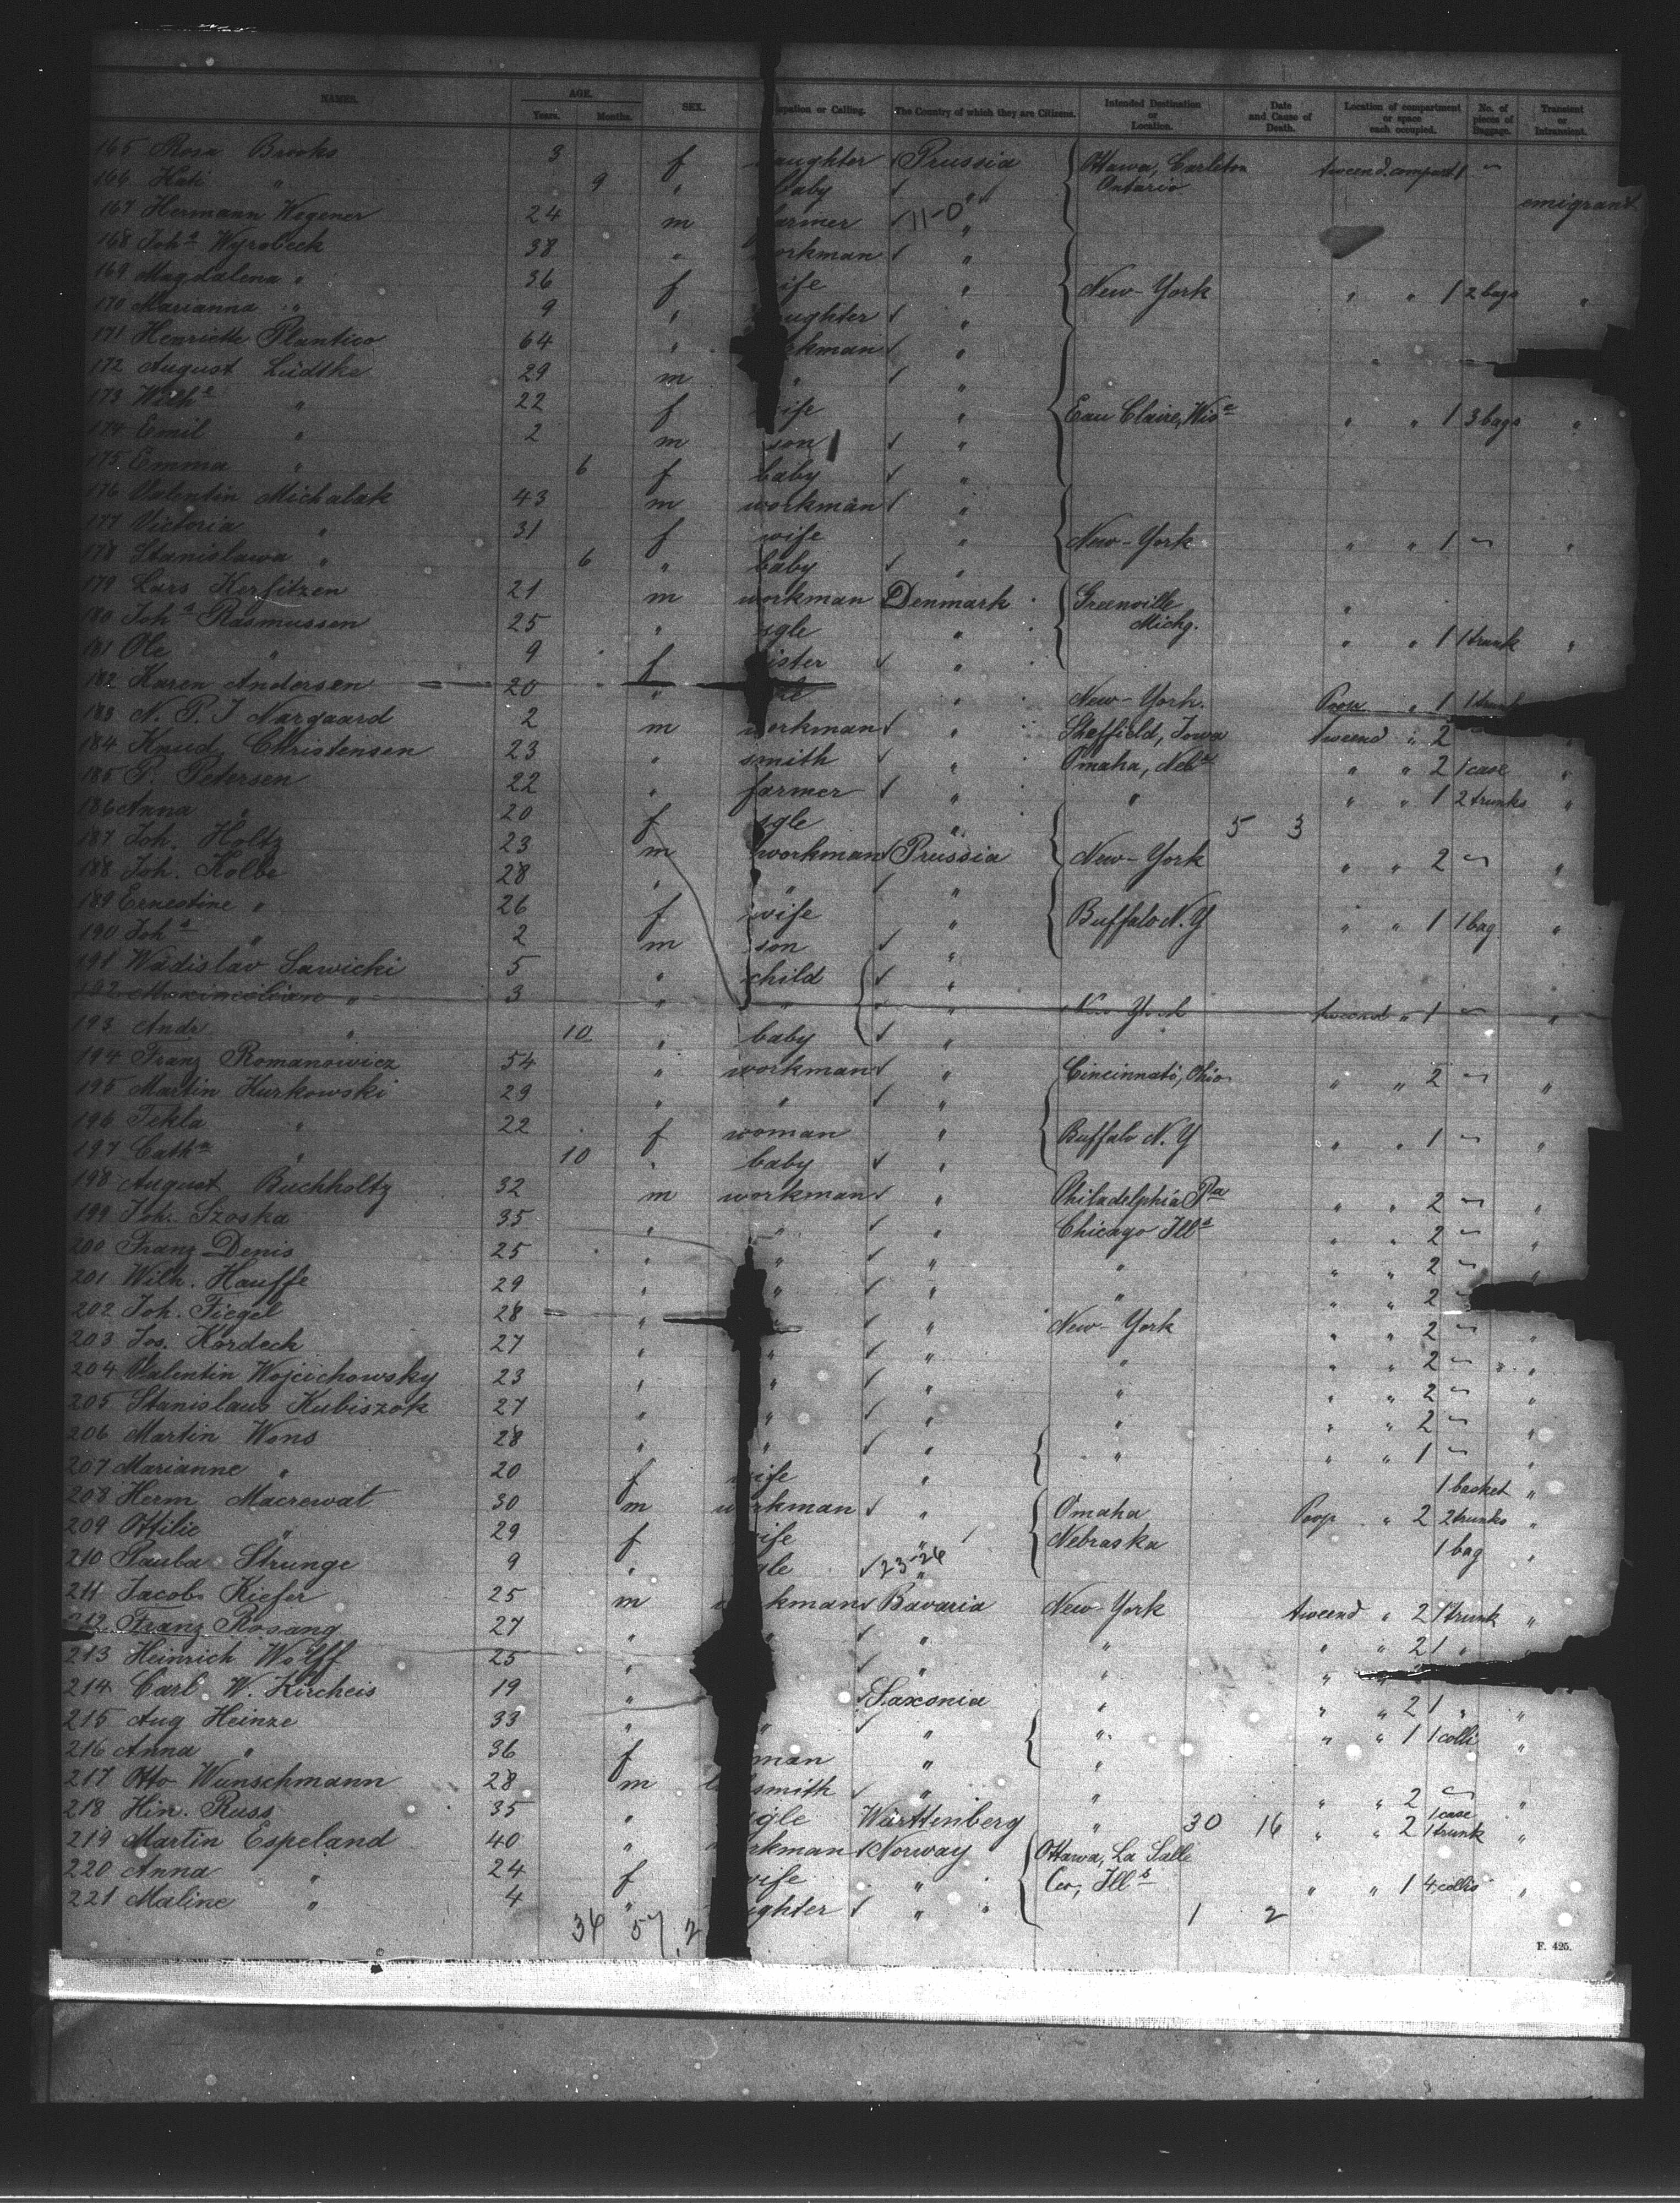 NAMES. AGE. Years. Months. SEX. upation or Calling. The Country of which they are Citizens. Intended Destination or Location. Date and Cause of Death. Location of compartment or space each occupied. No. of pieces of Baggage. Transient or Intransient.
165 Rosa Brooks 3 f aughter Prussia Ottawa, Carleton tweend. compart. 1 "
166 Kati " 9 " baby " Ontario
167 Hermann Wegener 24 m armer 11-0 " emigrant
168 Joha Wyrobeck 38 " orkman "
169 Magdalena " 36 f ife " New-York " " 1 2 bags "
170 Marianna " 9 " ughter "
171 Henriette Plantico 64 " rkman "
172 August Lüdtke 29 m " "
173 Wilhe " 22 f ife " Eau Claire, Wis " " 1 3 bags "
174 Emil " 2 m son "
175 Emma " 6 f baby "
176 Valentin Michalak 43 m workman "
177 Victoria " 31 f wife " New-York " " 1 "
178 Stanislawa " 6 " baby "
179 Lars Kerfitzen 21 m workman Denmark Greenville "
180 Joha Rasmussen 25 " sgle " Michg. " " 1 1 trunk "
181 Ole " 9 f sister "
182 Karen Andersen 20 " " New-York. Poop " 1 1 trunk
183 N. P. J Nargaard 2 m workman " Sheffield, Iowa tweend " 2 "
184 Knud Christensen 23 " smith " Omaha, Neb " " 2 1 case "
185 P. Petersen 22 " farmer " " " " 1 2 trunks "
186 Anna " 20 f sgle " 5 3
187 Joh. Holtz 23 m workman Prussia New-York " " 2 "
188 Joh. Kolbe 28 " " "
189 Ernestine " 26 f wife " Buffalo N. Y " " 1 1 bag "
190 Joha " 2 m son "
191 Wadislav Sawicki 5 " child "
192 Maximilian " 3 " " " New York tweend " 1 "
193 Andr " 10 " baby "
194 Franz Romanowicz 54 " workman " Cincinnati, Ohio " " 2 "
195 Martin Kurkowski 29 " " "
196 Tekla " 22 f woman " Buffalo N. Y " " 1 "
197 Catha " 10 " baby "
198 August Buchholtz 32 m workman " Philadelphia Pa " " 2 "
199 Joh. Szoska 35 " " " Chicago Ills " " 2 "
200 Franz Denis 25 " " " " " " 2 "
201 Wilh. Hauffe 29 " " " " " " 2
202 Joh. Fiegel 28 " " " New-York " " 2 "
203 Jos. Kordeck 27 " " " " " " 2 "
204 Valentin Wojcichowsky 23 " " " " " " 2 "
205 Stanislaus Kubiszok 27 " " " " " " 2 "
206 Martin Wons 28 " " " " " " 1 "
207 Marianne " 20 f ife " 1 basket "
208 Herm Macrewat 30 m workman " Omaha Poop " 2 2 trunks "
209 Ottilie " 29 f ife " Nebraska 1 bag "
210 Paula Strunge 9 " gle 23-26 "
211 Jacob Kiefer 25 m kman Bavaria New-York tweend " 2 1 trunk "
212 Franz Rosang 27 " " " " " " 2 1 "
213 Heinrich Wolff 25 " " " " "
214 Carl W. Kircheis 19 " Saxonia " " " 2 1 " "
215 Aug Heinze 33 " " " " " " 1 1 colli "
216 Anna " 36 f man " "
217 Otto Wunschmann 28 m smith " " " " 2 "
218 Hin. Russ 35 " sgle Württenberg " 30 16 " " 2 1 case 1 trunk "
219 Martin Espeland 40 " rkman Norway Ottawa, La Salle
220 Anna " 24 f ife " Co, Ills " " 1 4 collis "
221 Maline " 4 " ghter " " 1 2
34 57 2
F. 425.